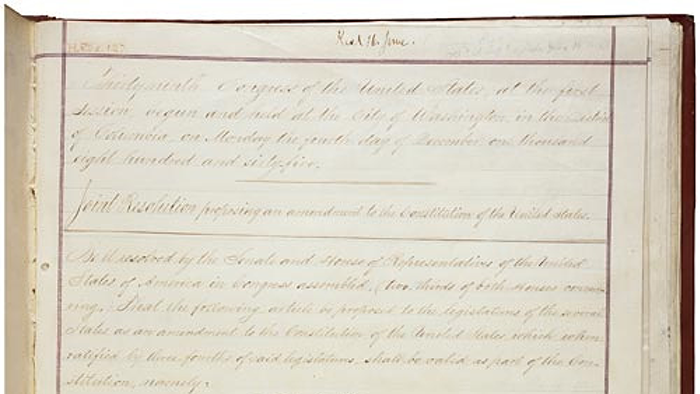 H. Res. 127.
Rec'd 16 June.
Thirty-ninth Congress of the United States, at the first
session, begun and held at the City of Washington, in the District
of Columbia, on Monday the fourth day of December, one thousand
eight hundred and sixty-five.
Joint Resolution proposing an amendment to the Constitution of the United States.
Be it resolved by the Senate and House of Representatives of the United
States of America in Congress assembled, (two thirds of both Houses concur-
ring,) That the following article be proposed to the legislatures of the several
States as an amendment to the Constitution of the United States, which, when
ratified by three fourths of said legislatures, shall be valid as part of the Con-
stitution, namely: